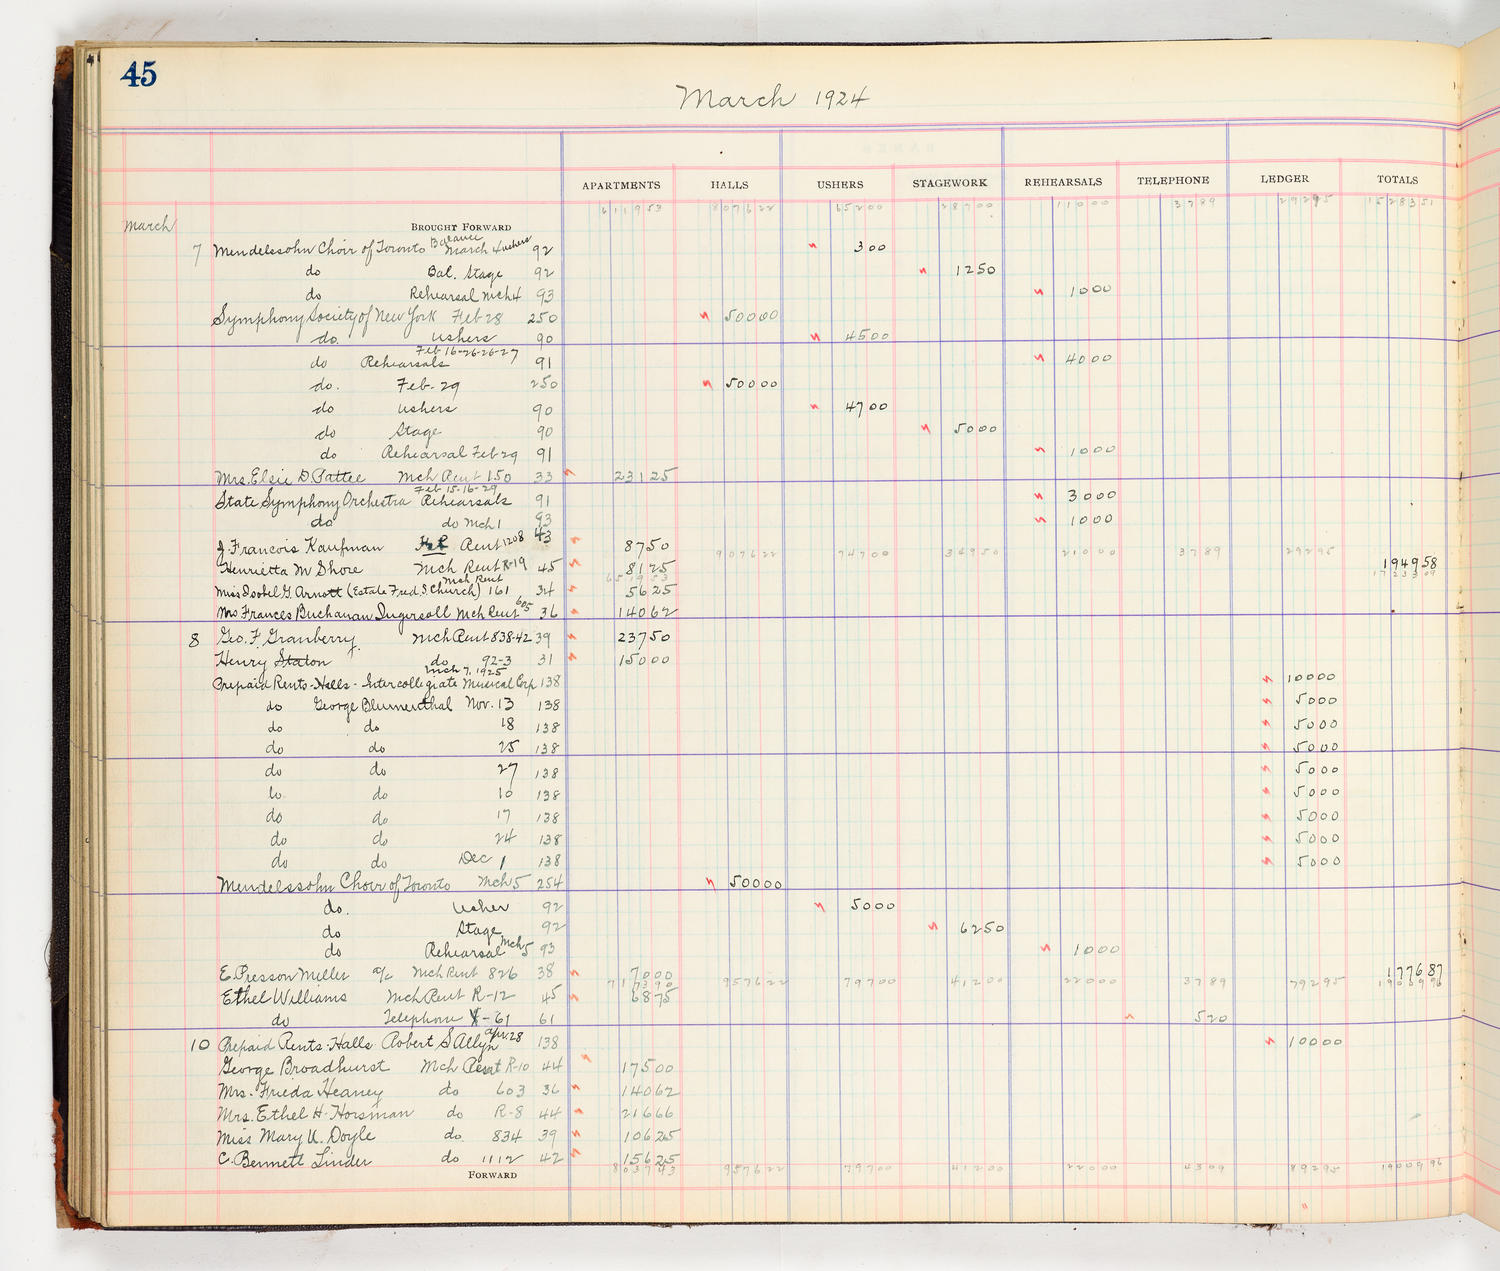 45
March 1924
APARTMENTS HALLS USHERS STAGEWORK REHEARSALS TELEPHONE LEDGER TOTALS
611953 807622 65200 28700 11000 3789 29295 1528351
March BROUGHT FORWARD
7 Mendelssohn Choir of Toronto Balance March 4 ushers 92 300
do Bal. Stage 92 1250
do Rehearsal Mch 4 93 1000
Symphony Society of New York Feb 28 250 50000
do. Ushers 90 4500
do Rehearsals Feb 16-26-26-27 91 4000
do. Feb. 29 250 50000
do Ushers 90 4700
do Stage 90 5000
do Rehearsal Feb 29 91 1000
Mrs. Elsie D Pattee Mch Rent 150 33 23125
State Symphony Orchestra Rehearsals Feb. 15-16-29 91 3000
do do Mch 1 93 1000
J. Francois Kaufman Rent 1208 43 8750
907622 74700 34950 21000 3789 29295
Henrietta M Shore Mch Rent R-19 45 8125 194958
651953 1723309
Miss Isobel G. Arnott (Estate Fred. S. Church) 161 Mch Rent 34 5625
Mrs Frances Buchanan Ingersoll Mch Rent 605 36 14062
8 Geo. F. Granberry Mch Rent 838-42 39 23750
Henry Staton do 92-3 31 15000
Prepaid Rents-Halls - Intercollegiate Musical Corp Mch 7, 1925 138 10000
do George Blumenthal Nov. 13 138 5000
do do 18 138 5000
do do 25 138 5000
do do 27 138 5000
do do 10 138 5000
do do 17 138 5000
do do 24 138 5000
do do Dec 1 138 5000
Mendelssohn Choir of Toronto Mch 5 254 50000
do. Usher 92 5000
do Stage 92 6250
do Rehearsal Mch 5 93 1000
E. Presson Miller a/c Mch Rent 826 38 7000 177687
717390 957622 79700 41200 22000 3789 79295 1900996
Ethel Williams Mch Rent R-12 45 6875
do Telephone -61 61 520
10 Prepaid Rents-Halls Robert S Allyn Apr. 28 138 10000
George Broadhurst Mch Rent R-10 44 17500
Mrs. Frieda Heaney do 603 36 14062
Mrs. Ethel H. Horsman do R-8 44 21666
Miss Mary U. Doyle do. 834 39 10625
C. Bennett Linder do 1112 42 15625
FORWARD 803743 957622 79700 41200 22000 4309 89295 1900996